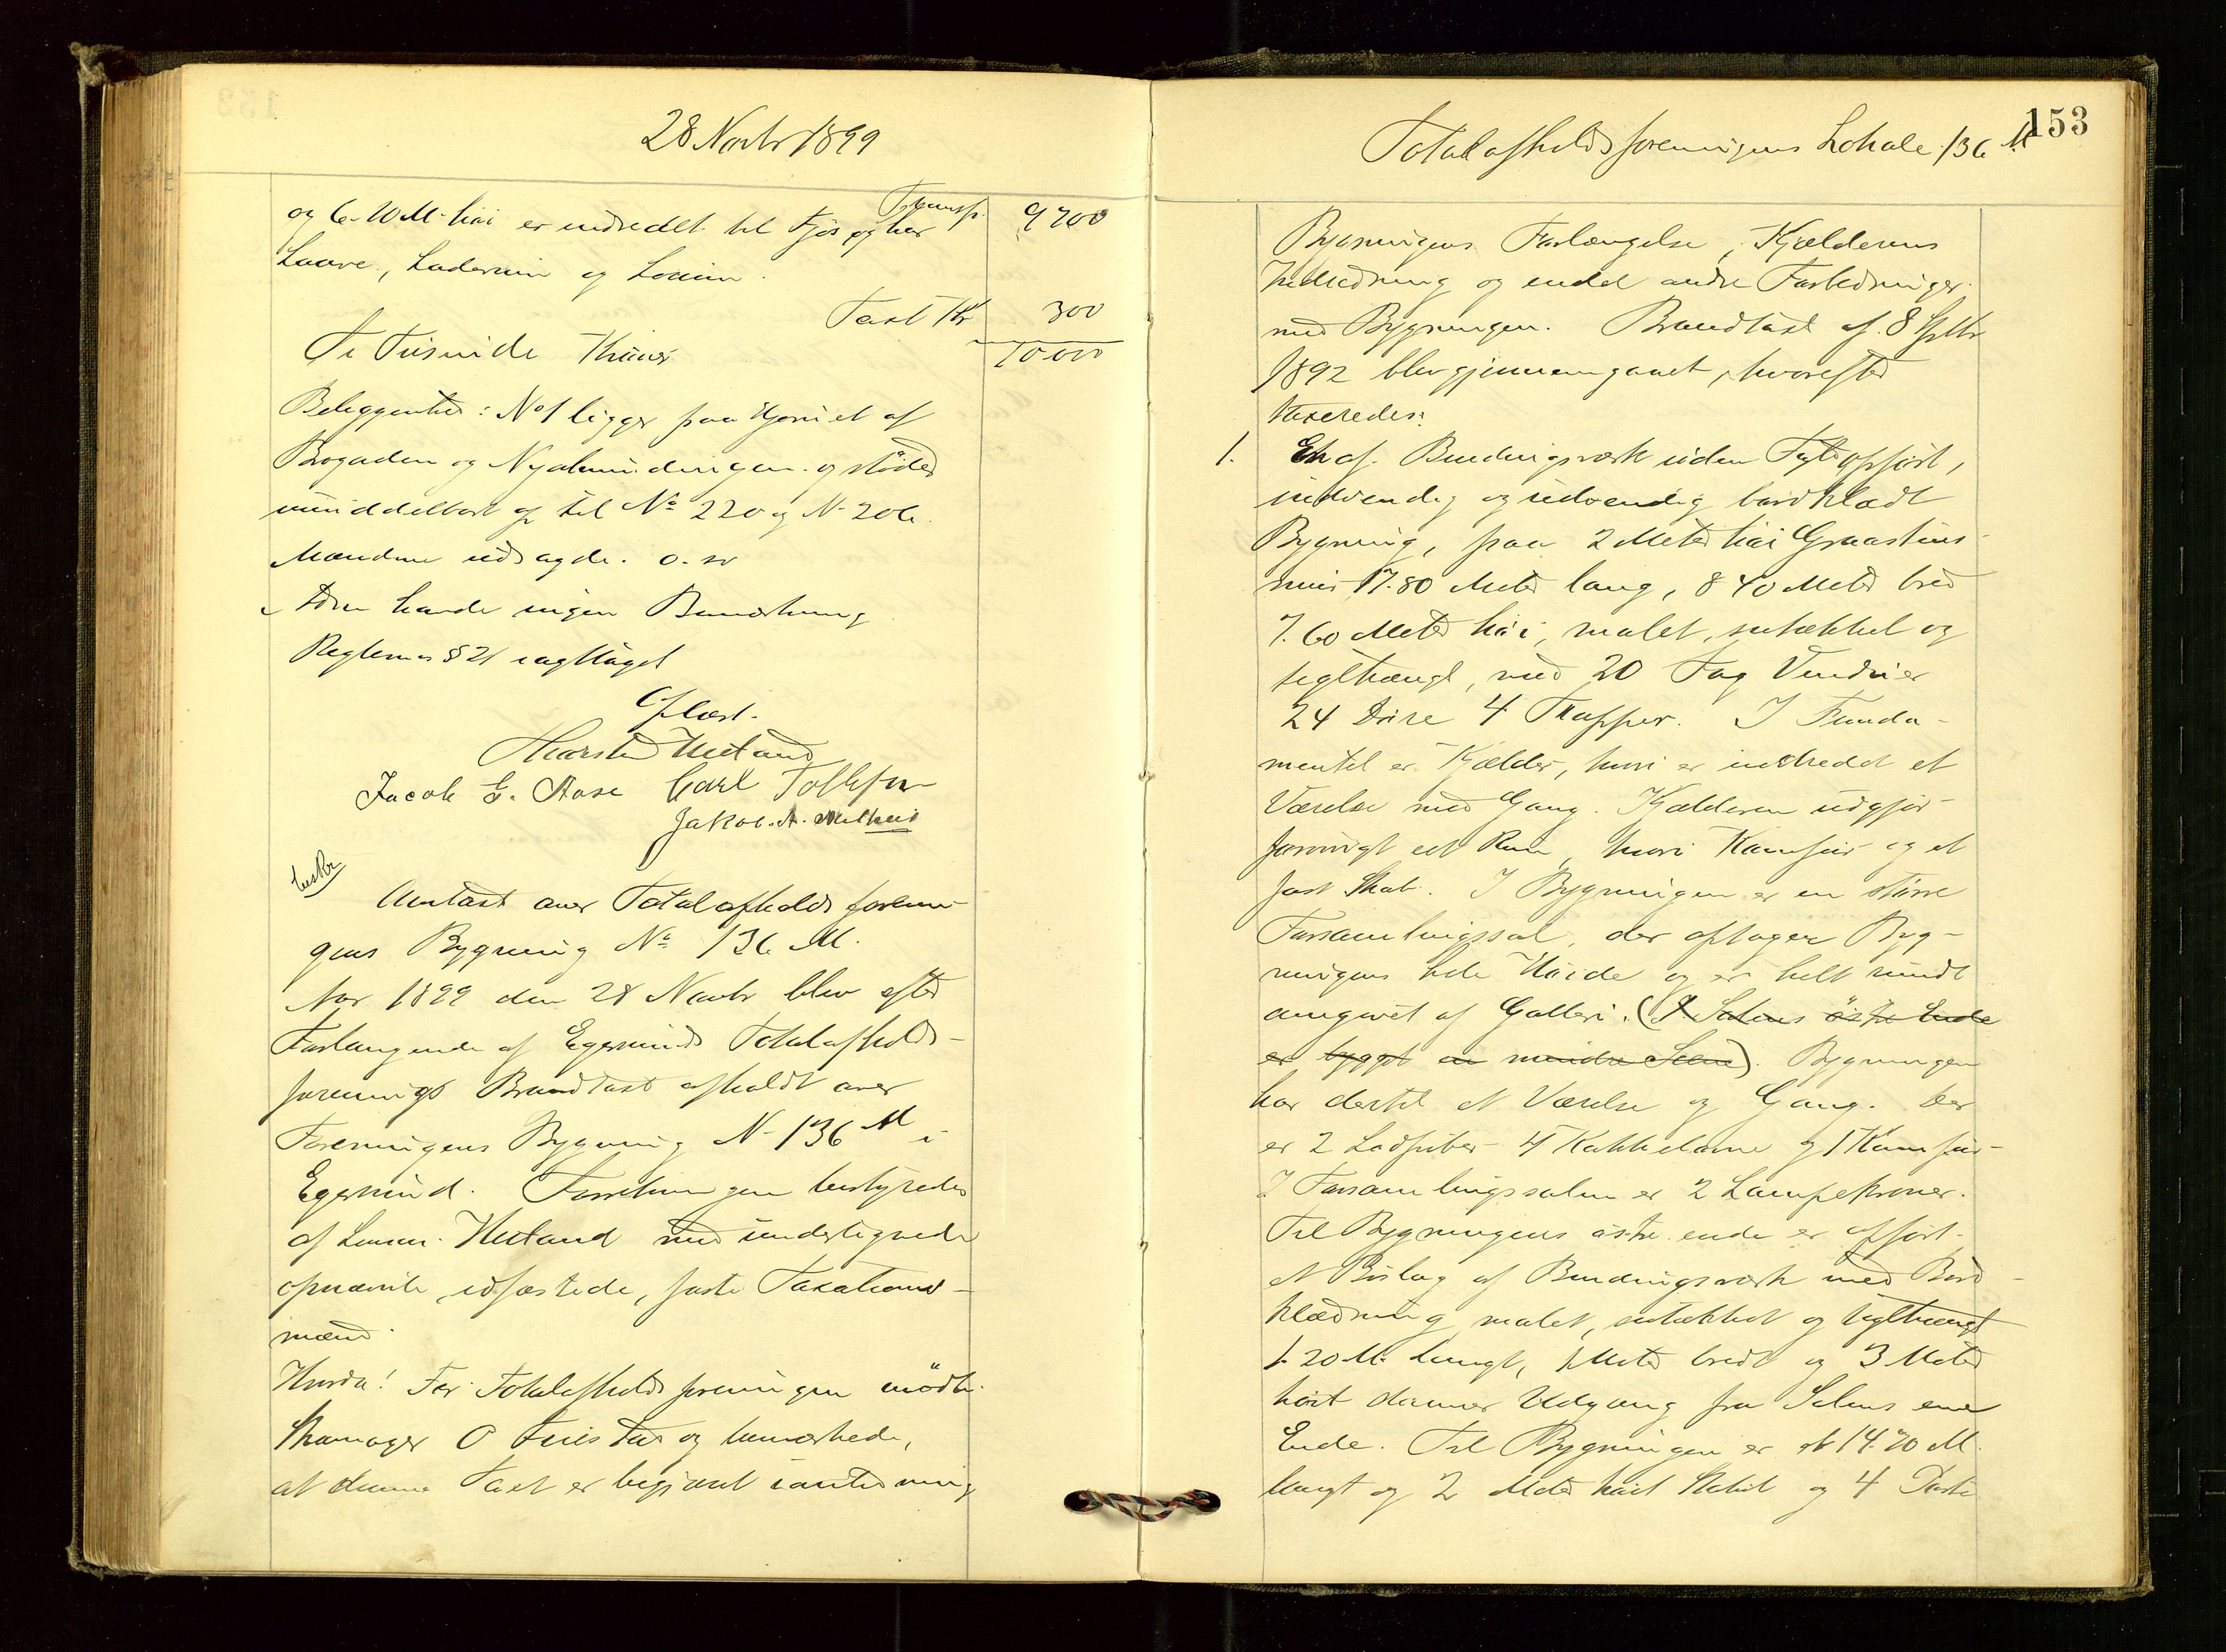 28 Novbr 1899
Transp. 9700
og 6.10 M. høi er indredet til Fjøs og har
Laave, Laderum og
Taxt Kr 300
Ti Tusinde Kroner 10000
Beliggenhed: No 1 ligger paa Hjørnet af
og Nyalmindingen og støder
umiddelbart op til No 220 og N. 206.
Mændene udsagde. o. sv
havde ingen Bemærkning
Reglem. § 21 iagttaget
Oplæst.
Jacob G. Aase Carl Tollefsen
Jakob. A.
beskr
Omtaxt over Totalafholdsforenin-
gens Bygning No 136 M.
Aar 1899 den 28 Novbr blev efter
Forlangende af Egersunds Totalafholds-
forenings Brandtaxt afholdt over
Foreningens Bygning N. 136 M i
Egersund. Forretningen bestyredes
af Lensm. med undertegnede
opnævnte edfæstede, faste Taxations-
mænd.
Hvorda! For Totalafholdsforeningen mødte
Skomager O og bemærkede,
at denne Taxt er begjæret i anledning
153
Totalafholdsforeningens Lokale 136 M
Bygningens Forlængelse, Kjælderens
Indredning og endel andre Forbedringer
med Bygningen. Brandtaxt af 8 Septbr
1892 blev gjennemgaaet, hvorefter
taxeredes:
1. En af Bindingsværk uden Fyld opført,
indvendig og udvendig bordklædt
Bygning, paa 2 Meter høi Graastens-
mur 17.80 Meter lang, 8 40 Meter bred
7.60 Meter høi, malet, sutækket og
teglhængt, med 20 Fag Vinduer
24 Døre 4 Trapper. I Funda-
mentet er Kjælder, hvori er indredet et
Værelse med Gang. Kjælderen udgjør
forøvrigt et Rum, hvori Komfur og et
fast Skab. I Bygningen er en større
Forsamlingssal, der optager Byg-
ningens hele Høide og er helt rundt
omgivet af Galleri. (I Salens østre Ende
er bygget en mindre Scene). Bygningen
har dertil et Værelse og Gang. Der
er 2 Ladpiber 4 Kakkelovne og 1 Komfur
I Forsamlingssalen er 2 Lampekroner.
Til Bygningens østre ende er opført
et Bislag af Bindingsværk med Bord-
klædning malet, sutækket og teglhængt
1.20 M. langt, 1 Meter bredt og 3 Meter
høit danner Udgang fra Salens ene
Ende. Til Bygningen er et 14.70 M.
langt og 2 Meter høit Stakit og 4 Porte